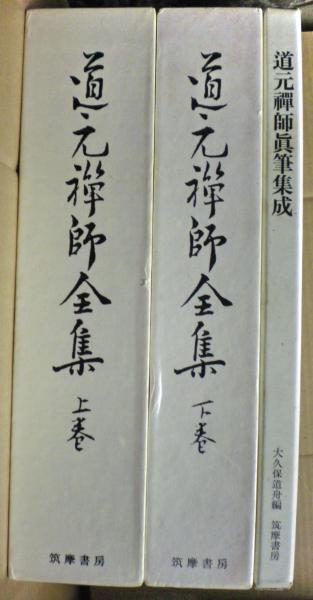 道元禪師全集 上巻
筑摩書房
道元禪師全集 下巻
筑摩書房
道元禪師眞筆集成
大久保道舟編 筑摩書房